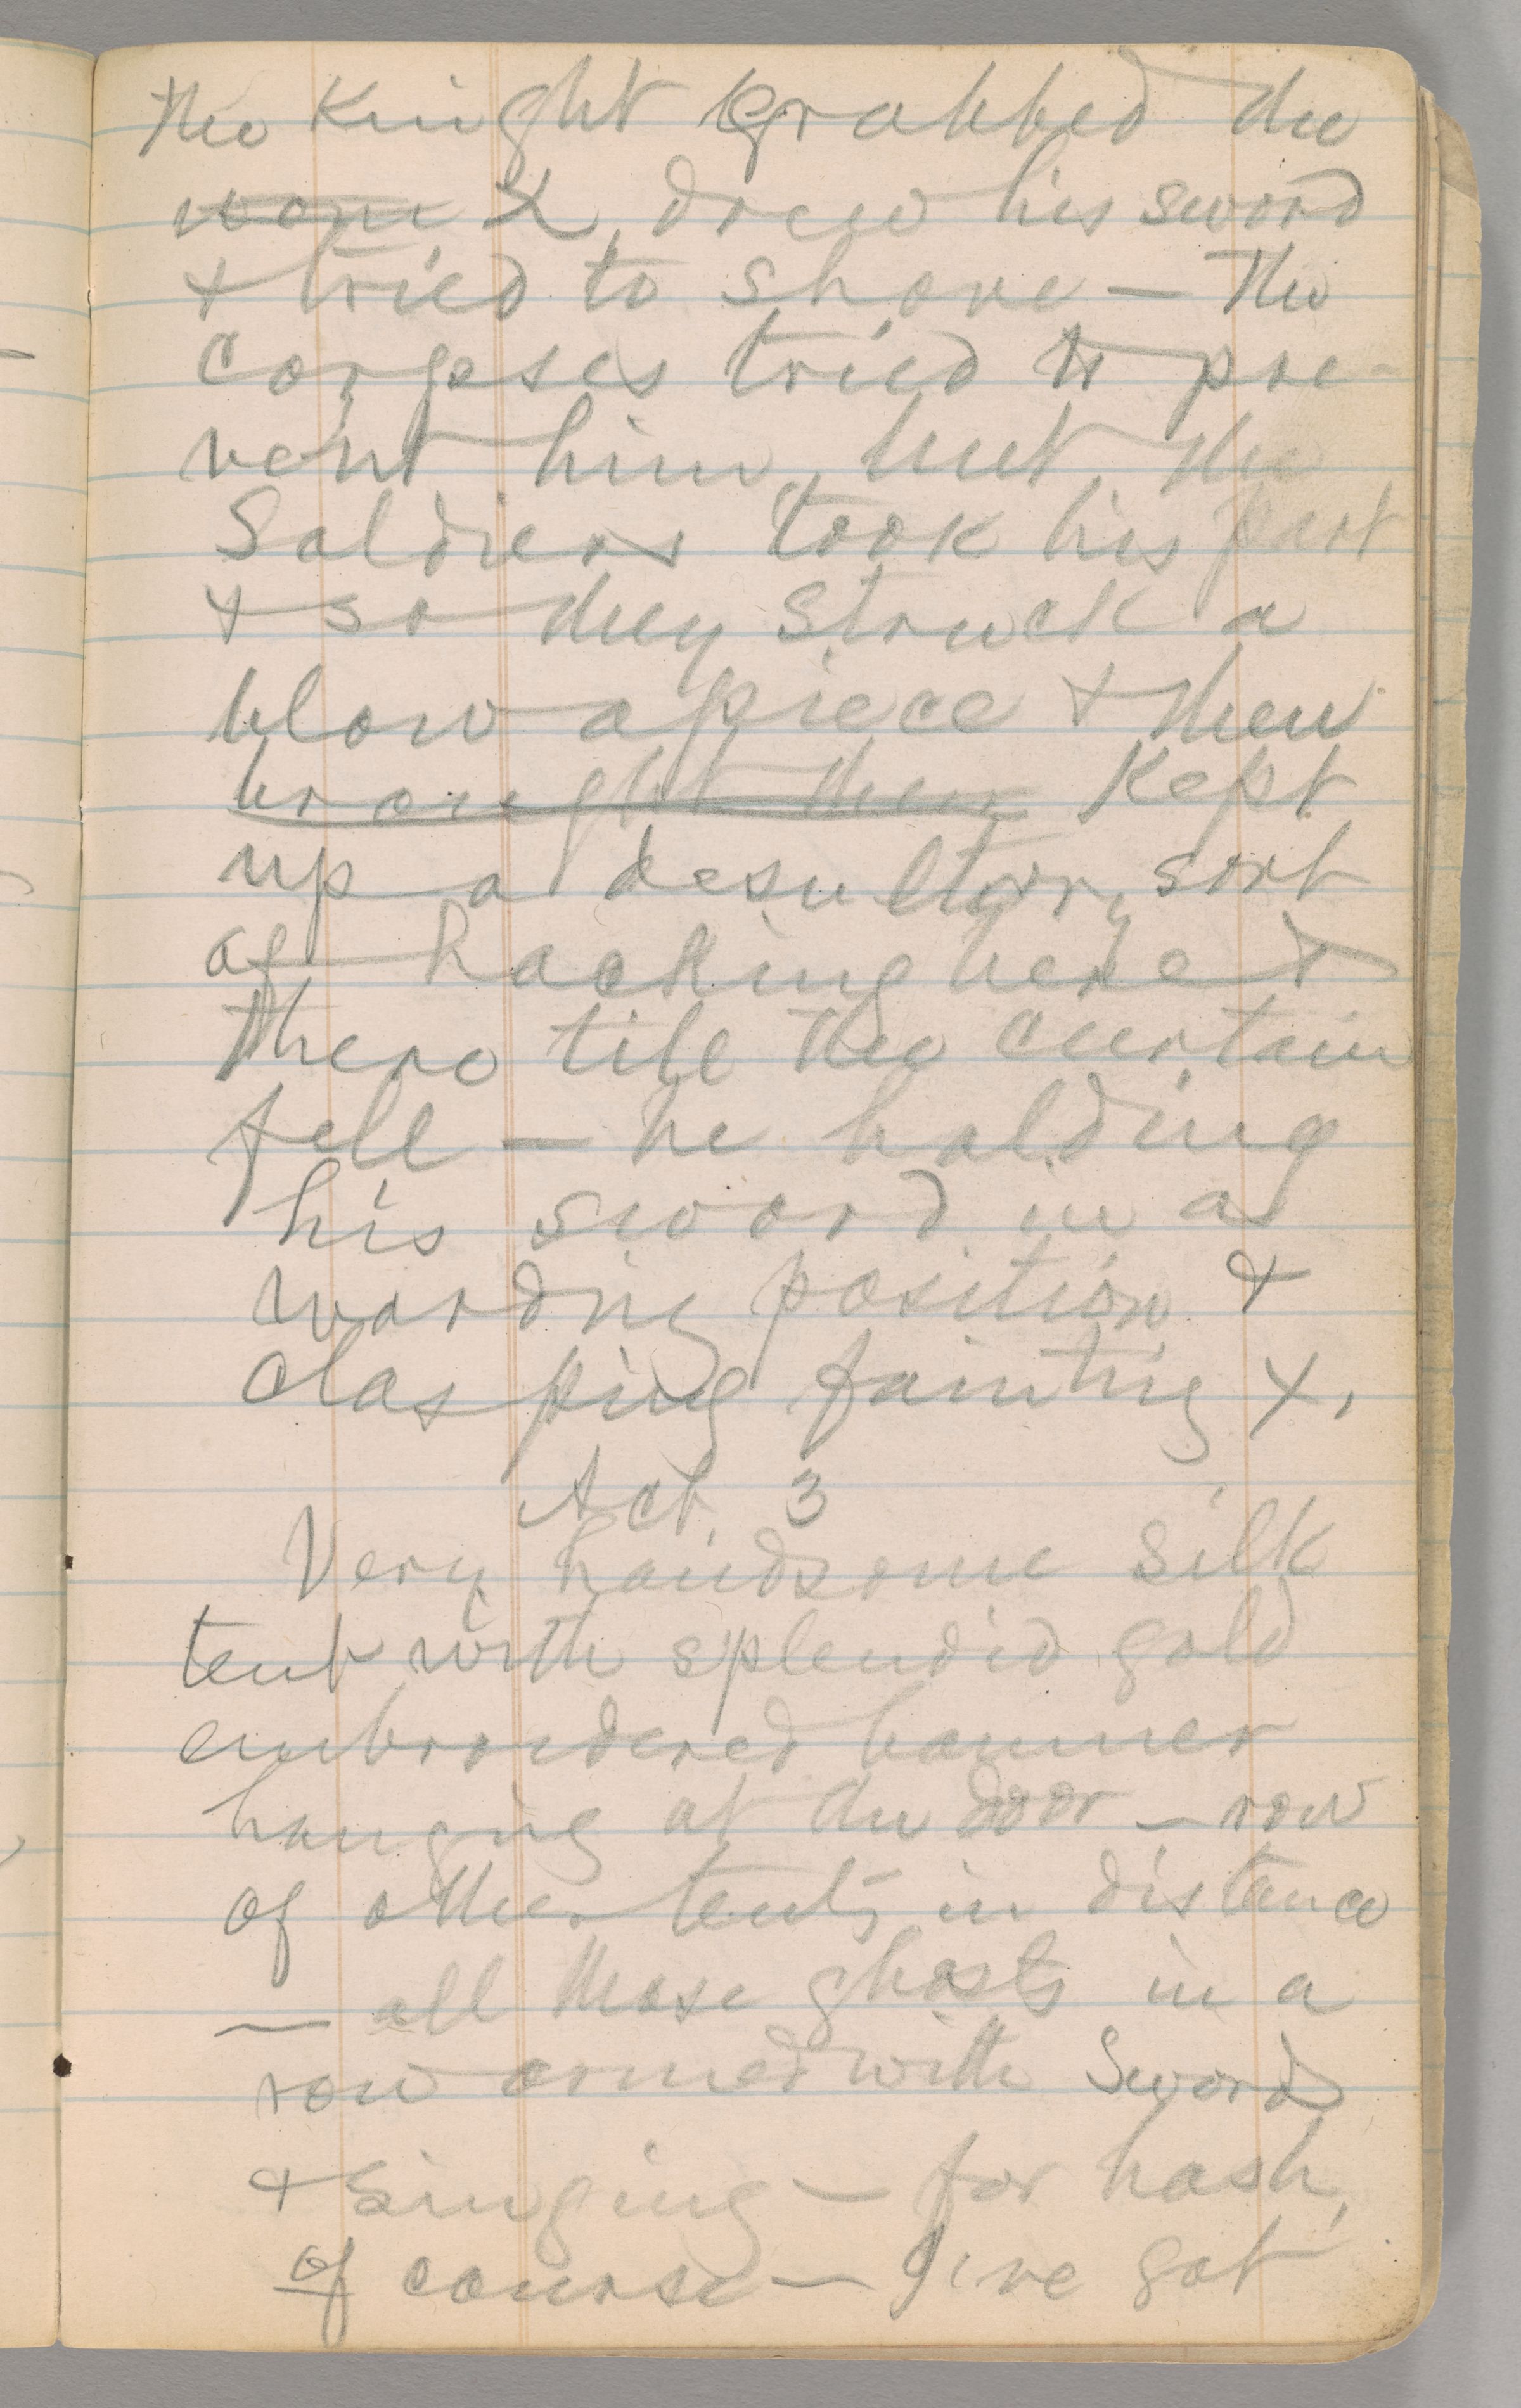 The Knight grabbed the
wom X, drew his sword
& tried to shove — The
corpses tried to pre-
vent him, but the
Soldiers took his part
& so they struck a
blow apiece & then
brought them Kept
up a desultory sort
of hacking here &
there till the curtain
fell — he holding
his sword in a
warding position &
clasping fainting X.
Act. 3
Very handsome silk
tent with splendid gold
embroidered banner
hanging at the door — row
of other tents in distance
— all those ghosts in a
row armed with Sword
& singing — for hash,
of course — I've got